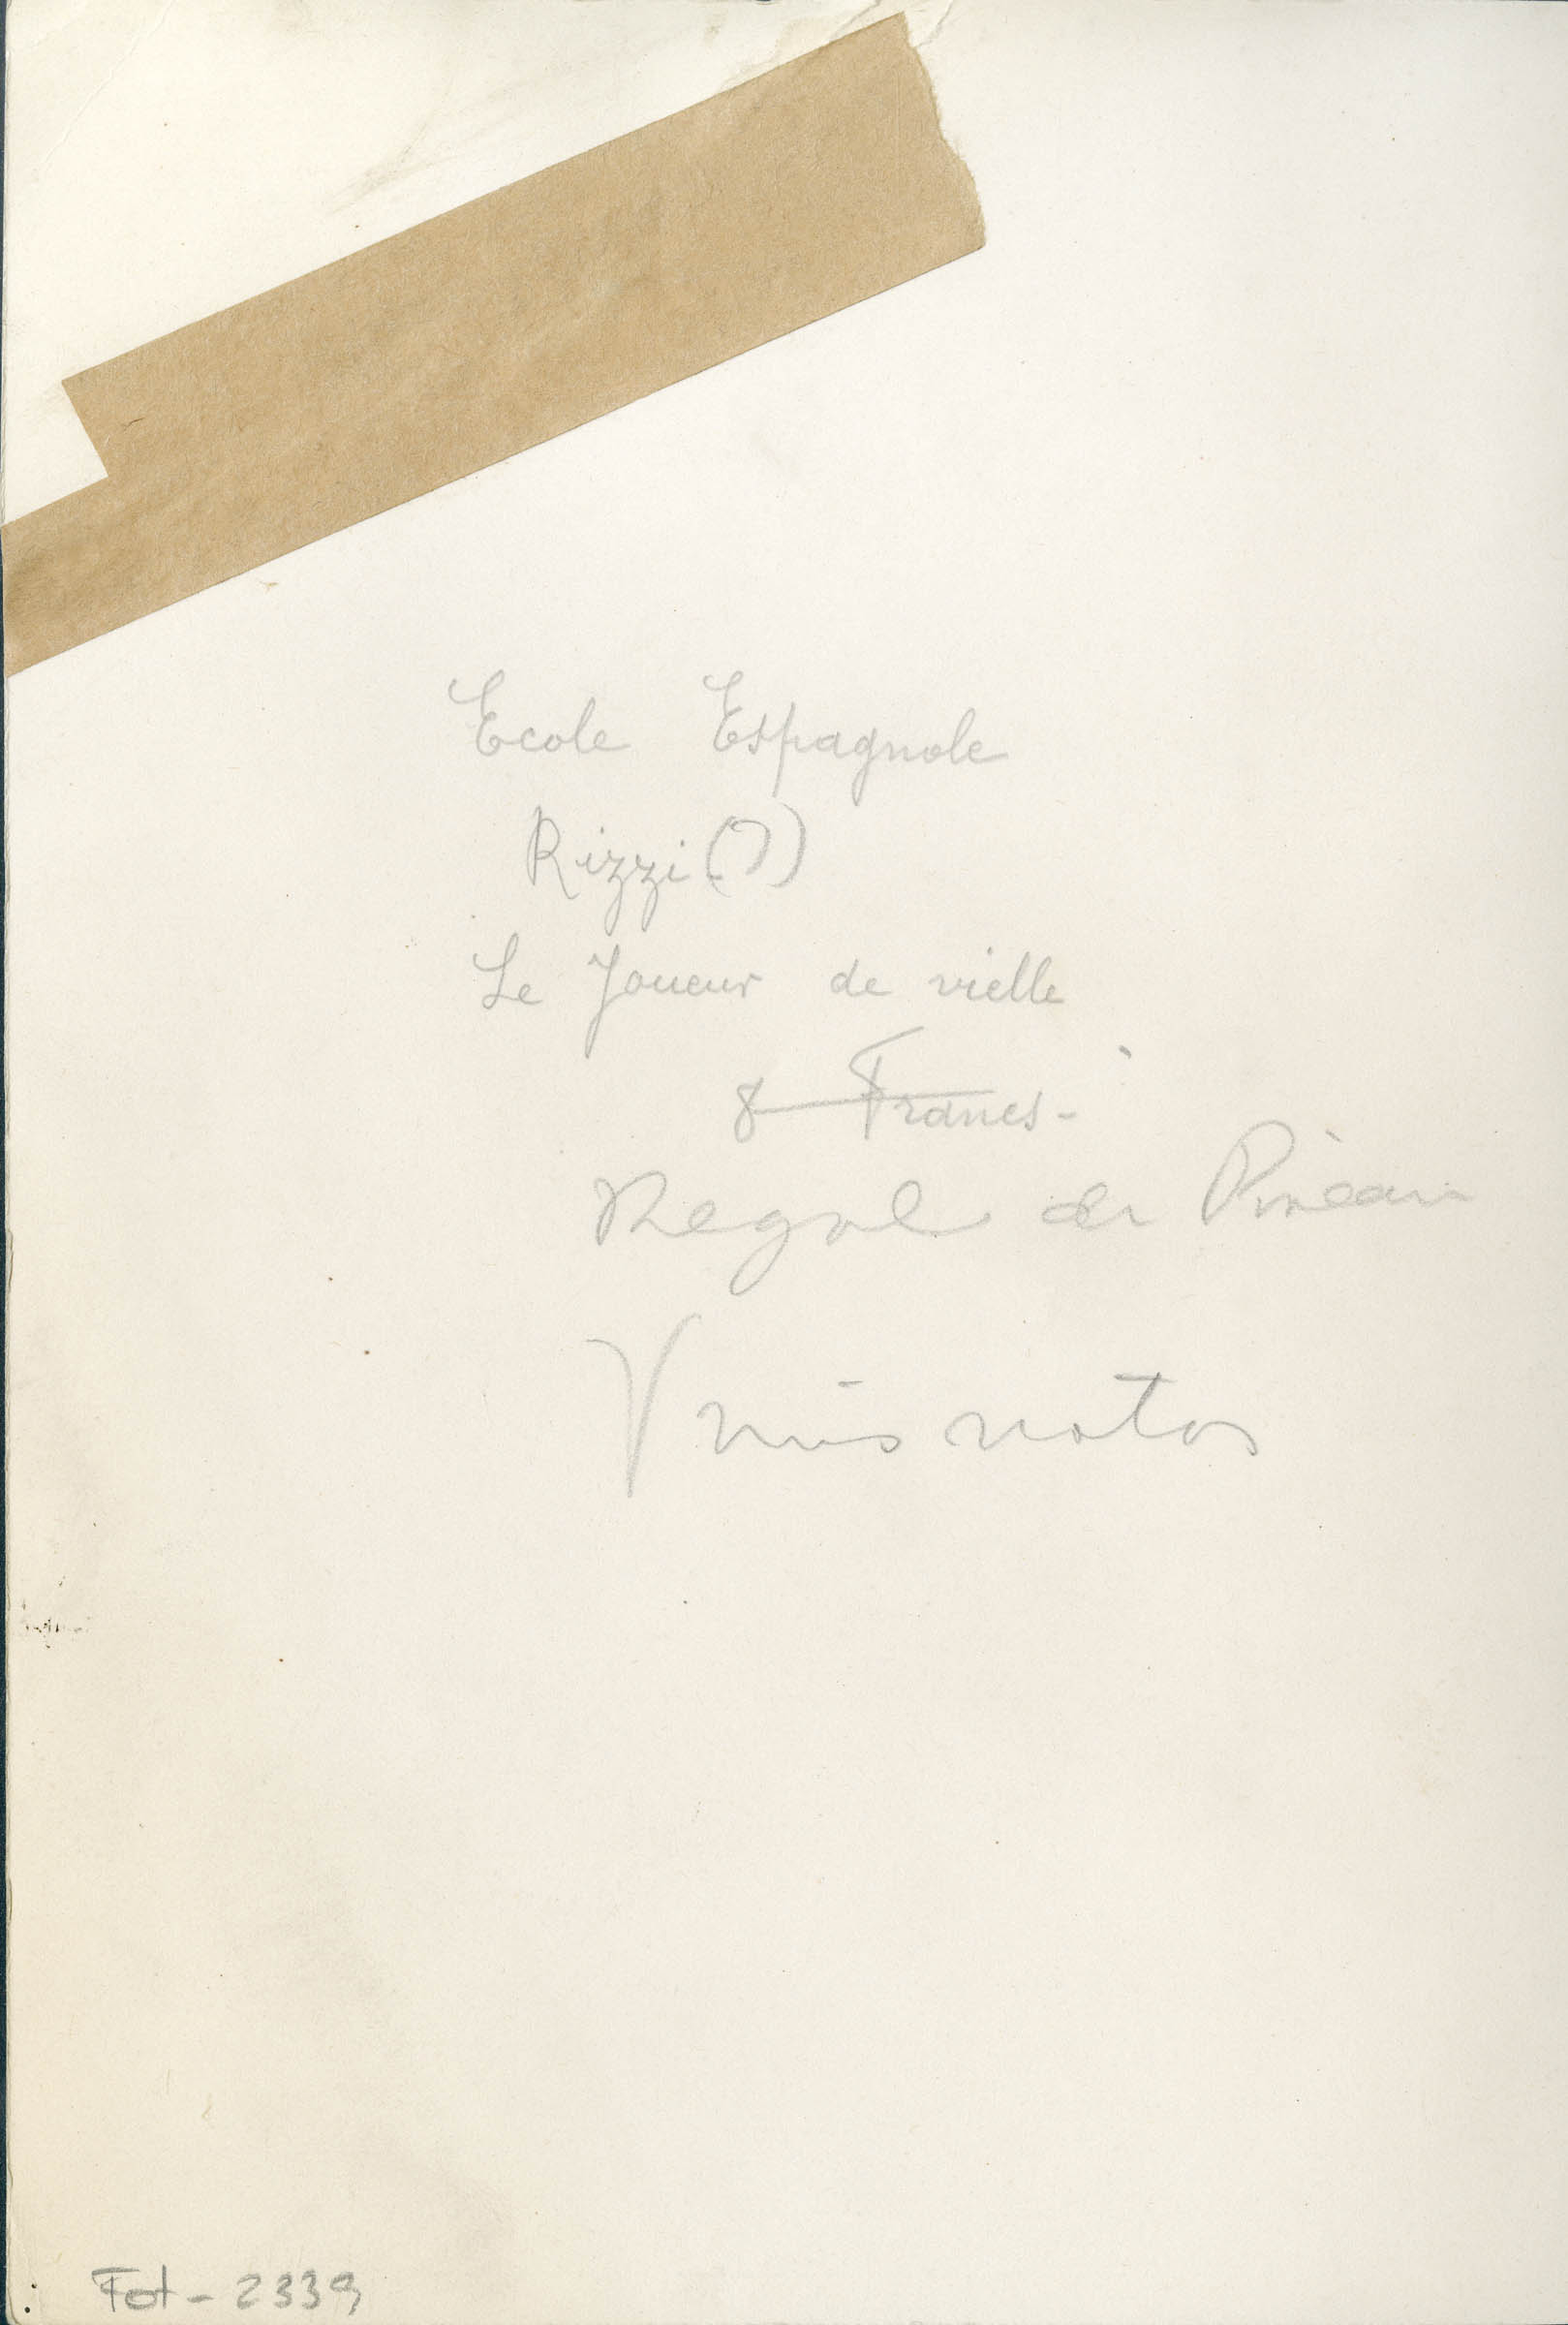 Ecole Espagnole
Rizzi (?)
Le Joueur de vielle
8 Francs -
Regal de Pineau
V mis notas
Fot - 2339